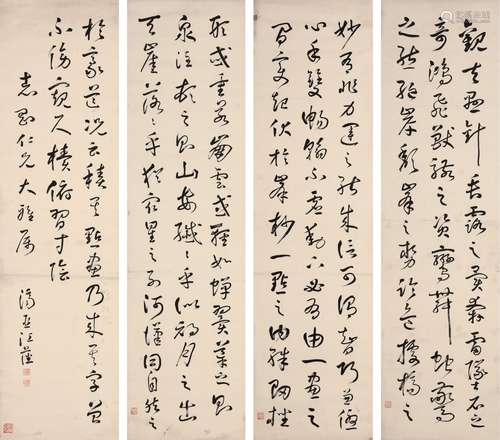 觀夫懸針垂露之異奔雷墜石之
奇鴻飛獸駭之資鸞舞蛇驚
之態絕岸頹峯之勢臨危據槁之
妙有非力運之能成信可謂智巧兼優
心手雙暢翰不虛動下必有由一畫之
間變起伏於峯杪一點之內殊衄挫
形或重若崩雲或輕如蟬翼導之則
泉注頓之則山安纖纖乎似初月之出
天崖落落乎猶眾星之列河漢同自然之
於豪芒況云積其點畫乃成其字曾
不傍窺尺櫝俯習寸陰
志仁兄大雅屬